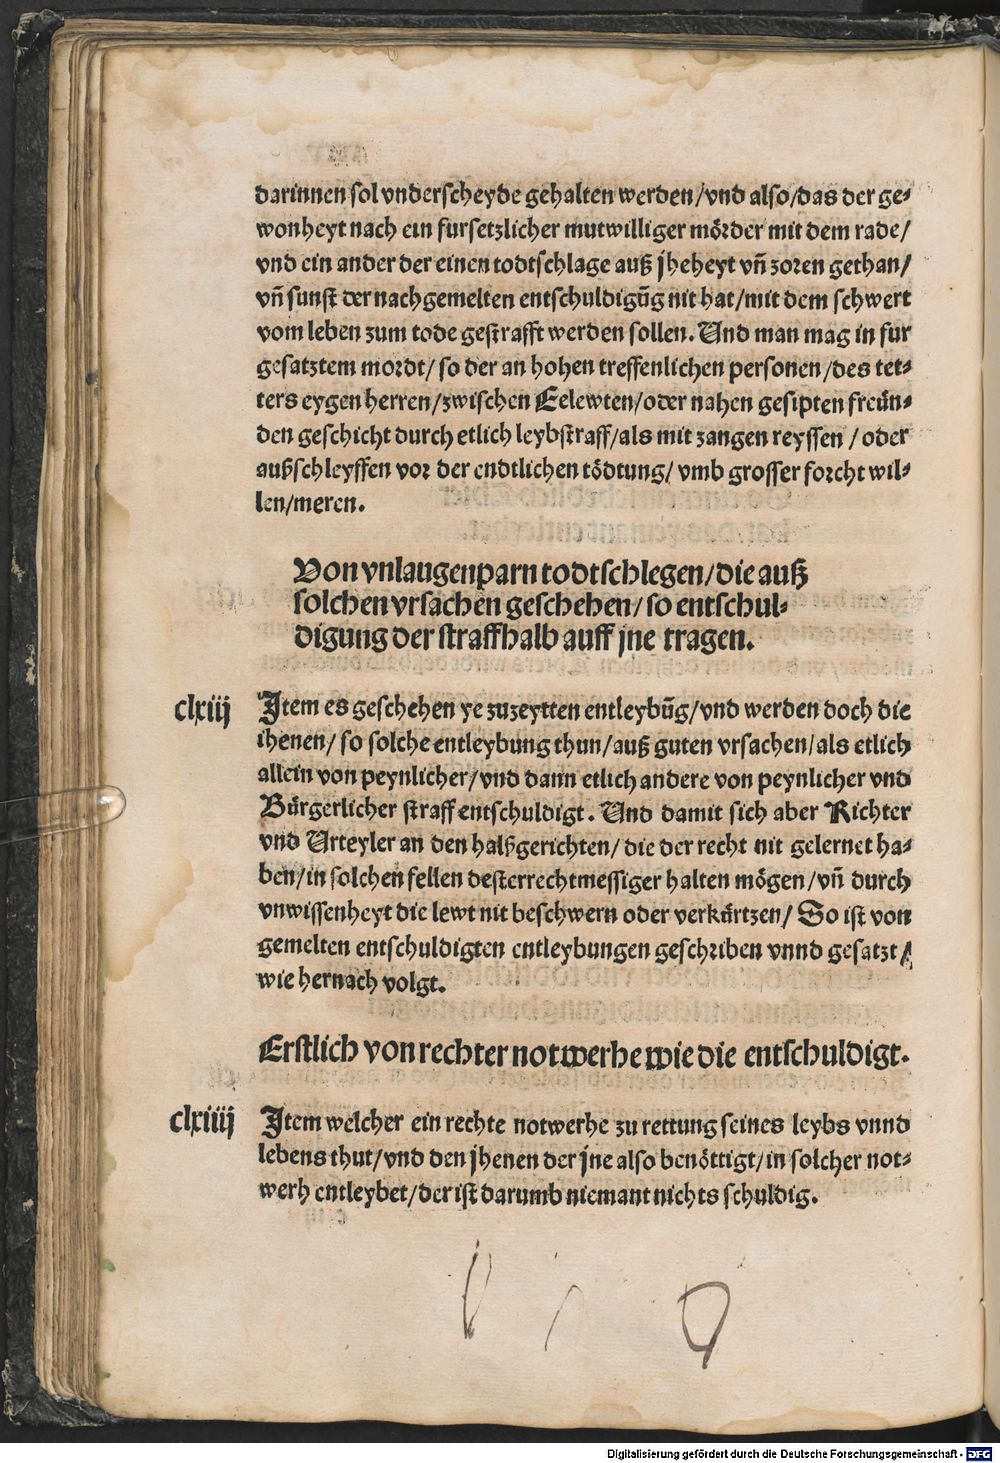 darinnen sol vnderscheyde gehalten werden/vnd also/das der ge⸗
wonheyt nach ein fursetzlicher mutwilliger mörder mit dem rade/
vnd ein ander der einen todtschlage auß jheheyt vñ zoren gethan/
vñ sunst der nachgemelten entschuldigũg nit hat/mit dem schwert
vom leben zum tode gestrafft werden sollen. Und man mag in fur
gesatztem mordt/ so der an hohen treffenlichen personen/des tet⸗
ters eygen herren/zwischen Eelewten/oder nahen gesipten freün⸗
den geschicht durch etlich leybstraff/als mit zangen reyssen / oder
außschleyffen vor der endtlichen tödtung/ vmb grosser forcht wil⸗
len/meren.
Von vnlaugenparn todtschlegen/die auß
solchen vrsachen geschehen/ so entschul⸗
digung der straffhalb auff jne tragen.
clxiij Item es geschehen ye zuzeytten entleybũg/vnd werden doch die
ihenen/ so solche entleybung thun/auß guten vrsachen/als etlich
allein von peynlicher/vnd dann etlich andere von peynlicher vnd
Bürgerlicher straff entschuldigt. Und damit sich aber Richter
vnd Urteyler an den halßgerichten/ die der recht nit gelernet ha⸗
ben/in solchen fellen desterrechtmessiger halten mögen/vñ durch
vnwissenheyt die lewt nit beschwern oder verkürtzen/ So ist von
gemelten entschuldigten entleybungen geschriben vnnd gesatzt/
wie hernach volgt.
Erstlich von rechter notwerhe wie die entschuldigt.
clxiiij Item welcher ein rechte notwerhe zu rettung seines leybs vnnd
lebens thut/vnd den jhenen der jne also benöttigt/in solcher not⸗
werh entleybet/der ist darumb niemant nichts schuldig.
Digitalisierung gefördert durch die Deutsche Forschungsgemeinschaft - DFG